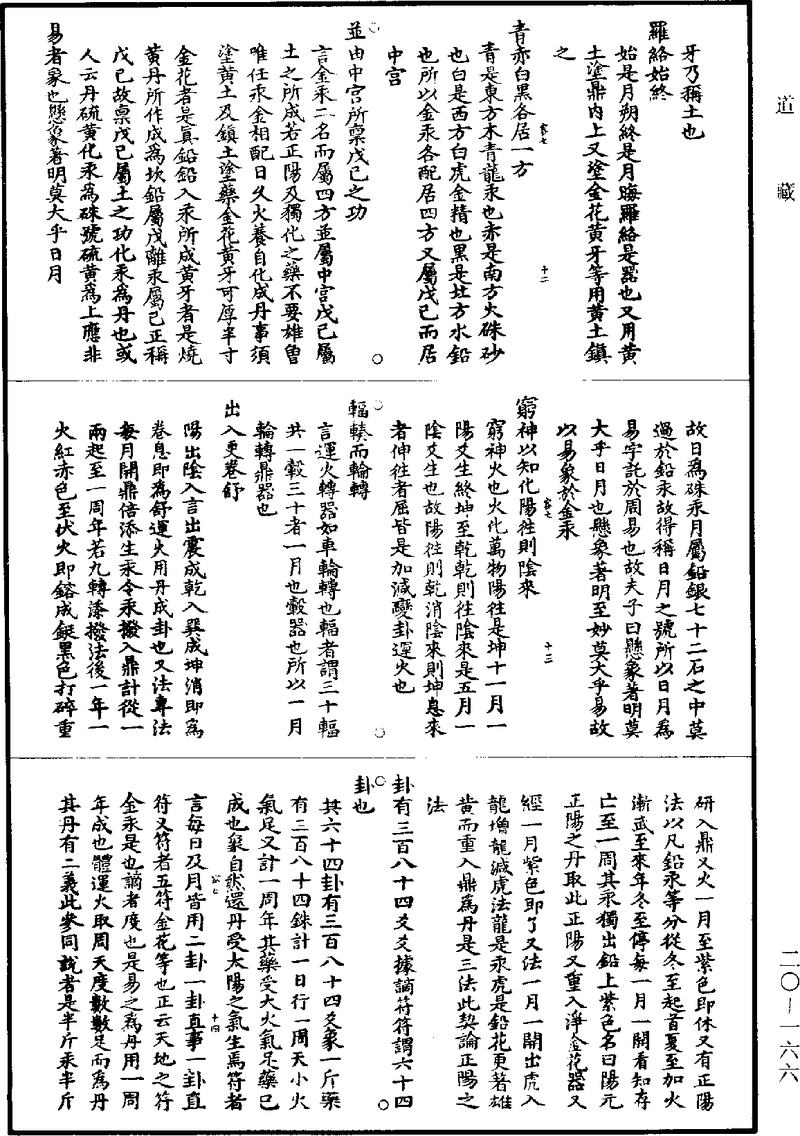 道藏
牙乃稱土也
羅絡始終
始是月朔終是月晦羅絡是器也又用黃
土塗鼎內上又塗金花黃牙等用黃土鎮
之
青赤白黑各居一方
青是東方木青龍汞也赤是南方火硃砂
也白是西方白虎金精也黑是北方水鉛
也所以金汞各配居四方又屬戊己而居
中宮
並由中宮所稟戊己之功
言金汞二名而屬四方並屬中宮戊己屬
土之所成若正陽及獨化之藥不要雄曽
唯任汞金相配日久火養自化成丹事須
塗黃土及鎮土塗藥金花黃牙可厚半寸
金花者是真鉛鉛入汞所成黃牙者是燒
黃丹所作成為坎鉛屬戊離汞屬己正稱
戊己故稟戊己屬土之功化汞為丹也或
人云丹硫黃化汞為硃號硫黃為上應非
易者象也懸象著明莫大乎日月
故日為硃汞月屬鉛銀七十二石之中莫
過於鉛汞故得稱日月之號所以日月為
易字託於周易也故夫子曰懸象著明莫
大乎日月也懸象著明至妙莫大乎易故
以易象於金汞
窮神以知化陽往則陰來
窮神火也火化萬物陽往是坤十一月一
陽爻生終坤至乾乾則往陰來是五月一
陰爻生也故陽往則乾消陰來則坤息來
者伸往者屈皆是加減變卦運火也
輻輳而輪轉
言運火轉器如車輪轉也輻者謂三十輻
共一轂三十者一月也轂器也所以一月
輪轉鼎器也
出入更卷舒
陽出陰入言出震成乾入巽成坤消即為
卷息即為舒運火用丹成卦也又法專法
每月開鼎倍添生汞令汞撥入鼎計從一
兩起至一周年若九轉添撥法後一年一
火紅赤色至伏火即鎔成鋌黑色打碎重
研入鼎又火一月至紫色即休又有正陽
法以凡鉛汞等分從冬至起首夏至加火
漸武至來年冬至停每一月一開看知存
亡至一周其汞獨出鉛上紫色名曰陽元
正陽之丹取此正陽又重入淨金花器又
經一月紫色即了又法一月一開出虎入
龍增龍減虎法龍是汞虎是鉛花更著雄
黃而重入鼎為丹是三法此契論正陽之
法
卦有三百八十四爻爻據謫符符謂六十四
卦也
其六十四卦有三百八十四爻象一斤藥
有三百八十四銖計一日行一周天小火
氣足又計一周年其藥受大火氣足藥已
成也象自然還丹受太陽之氣生焉符者
言每日及月皆用二卦一卦直事一卦直
符又符者五符金花等也正云天地之符
金汞是也謫者度也是易之為丹用一周
年成也體運火取周天度數數足而為丹
其丹有二義此參同說者是半斤汞半斤
二〇—一六六